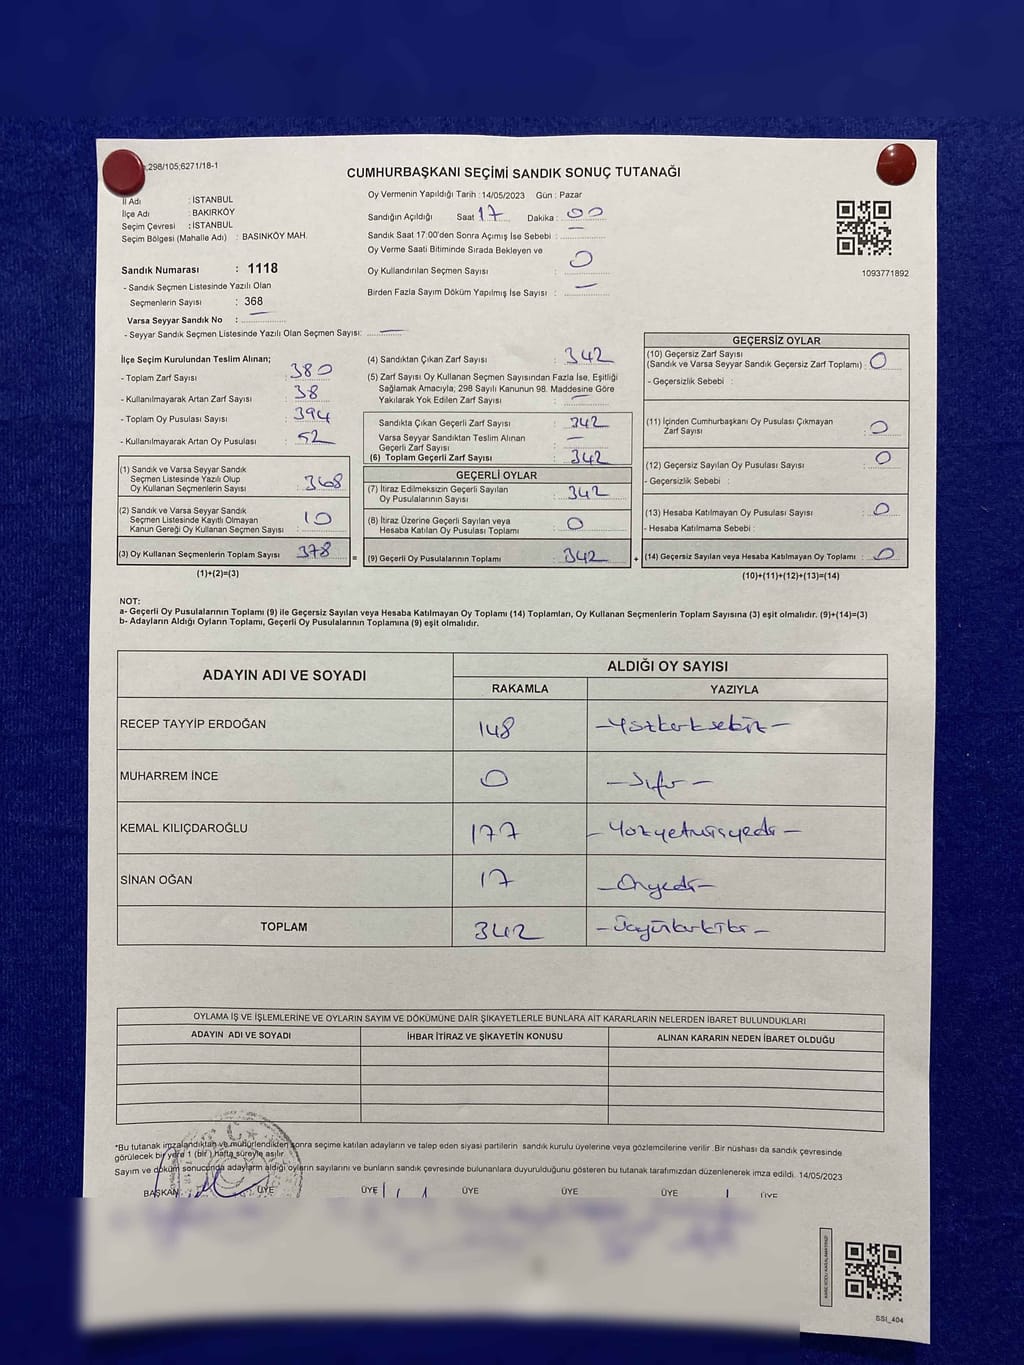 298/105;6271/18-1
CUMHURBAŞKANI SEÇİMİ SANDIK SONUÇ TUTANAĞI
İl Adı : İSTANBUL
İlçe Adı : BAKIRKÖY
Seçim Çevresi : İSTANBUL
Seçim Bölgesi (Mahalle Adı) : BASINKÖY MAH.
Oy Vermenin Yapıldığı Tarih : 14/05/2023 Gün : Pazar
Sandığın Açıldığı Saat 17 Dakika : 00
Sandık Saat 17.00'den Sonra Açımış İse Sebebi : —
Oy Verme Saati Bitiminde Sırada Bekleyen ve
Oy Kullandırılan Seçmen Sayısı : 0
Birden Fazla Sayım Döküm Yapılmış İse Sayısı : —
1093771892
Sandık Numarası : 1118
- Sandık Seçmen Listesinde Yazılı Olan
Seçmenlerin Sayısı : 368
Varsa Seyyar Sandık No : —
- Seyyar Sandık Seçmen Listesinde Yazılı Olan Seçmen Sayısı: —
İlçe Seçim Kurulundan Teslim Alınan;
- Toplam Zarf Sayısı : 380
- Kullanılmayarak Artan Zarf Sayısı : 38
- Toplam Oy Pusulası Sayısı : 394
- Kullanılmayarak Artan Oy Pusulası : 52
(1) Sandık ve Varsa Seyyar Sandık
Seçmen Listesinde Yazılı Olup
Oy Kullanan Seçmenlerin Sayısı : 368
(2) Sandık ve Varsa Seyyar Sandık
Seçmen Listesinde Kayıtlı Olmayan
Kanun Gereği Oy Kullanan Seçmen Sayısı : 10
(3) Oy Kullanan Seçmenlerin Toplam Sayısı : 378
(1)+(2)=(3)
(4) Sandıktan Çıkan Zarf Sayısı : 342
(5) Zarf Sayısı Oy Kullanan Seçmen Sayısından Fazla İse, Eşitliği
Sağlamak Amacıyla, 298 Sayılı Kanunun 98. Maddesine Göre
Yakılarak Yok Edilen Zarf Sayısı : —
Sandıkta Çıkan Geçerli Zarf Sayısı : 342
Varsa Seyyar Sandıktan Teslim Alınan
Geçerli Zarf Sayısı : —
(6) Toplam Geçerli Zarf Sayısı : 342
GEÇERLİ OYLAR
(7) İtiraz Edilmeksizin Geçerli Sayılan
Oy Pusulalarının Sayısı : 342
(8) İtiraz Üzerine Geçerli Sayılan veya
Hesaba Katılan Oy Pusulası Toplamı : 0
= (9) Geçerli Oy Pusulalarının Toplamı : 342
GEÇERSİZ OYLAR
(10) Geçersiz Zarf Sayısı
(Sandık ve Varsa Seyyar Sandık Geçersiz Zarf Toplamı) : 0
- Geçersizlik Sebebi :
(11) İçinden Cumhurbaşkanı Oy Pusulası Çıkmayan
Zarf Sayısı : 0
(12) Geçersiz Sayılan Oy Pusulası Sayısı : 0
- Geçersizlik Sebebi :
(13) Hesaba Katılmayan Oy Pusulası Sayısı : 0
- Hesaba Katılmama Sebebi :
+ (14) Geçersiz Sayılan veya Hesaba Katılmayan Oy Toplamı : 0
(10)+(11)+(12)+(13)=(14)
NOT:
a- Geçerli Oy Pusulalarının Toplamı (9) ile Geçersiz Sayılan veya Hesaba Katılmayan Oy Toplamı (14) Toplamları, Oy Kullanan Seçmenlerin Toplam Sayısına (3) eşit olmalıdır. (9)+(14)=(3)
b- Adayların Aldığı Oyların Toplamı, Geçerli Oy Pusulalarının Toplamına (9) eşit olmalıdır.
ADAYIN ADI VE SOYADI ALDIĞI OY SAYISI
RAKAMLA YAZIYLA
RECEP TAYYİP ERDOĞAN 148 –Yüzkırksekiz–
MUHARREM İNCE 0 –Sıfır–
KEMAL KILIÇDAROĞLU 177 –Yüzyetmişyedi–
SİNAN OĞAN 17 –Onyedi–
TOPLAM 342 –Üçyüzkırkiki–
OYLAMA İŞ VE İŞLEMLERİNE VE OYLARIN SAYIM VE DÖKÜMÜNE DAİR ŞİKAYETLERLE BUNLARA AİT KARARLARIN NELERDEN İBARET BULUNDUKLARI
ADAYIN ADI VE SOYADI İHBAR İTİRAZ VE ŞİKAYETİN KONUSU ALINAN KARARIN NEDEN İBARET OLDUĞU
*Bu tutanak imzalandıktan ve mühürlendikten sonra seçime katılan adayların ve talep eden siyasi partilerin sandık kurulu üyelerine veya gözlemcilerine verilir. Bir nüshası da sandık çevresinde
görülecek bir yere 1 (bir) hafta süreyle asılır.
Sayım ve döküm sonucunda adayların aldığı oyların sayılarını ve bunların sandık çevresinde bulunanlara duyurulduğunu gösteren bu tutanak tarafımızdan düzenlenerek imza edildi. 14/05/2023
BAŞKAN ÜYE ÜYE ÜYE ÜYE ÜYE ÜYE
SSI_404